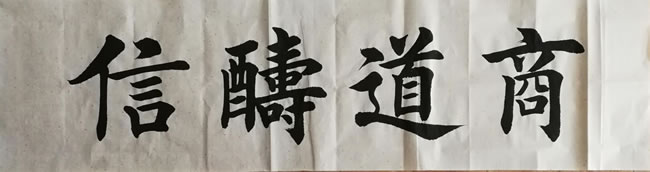 商道醻信